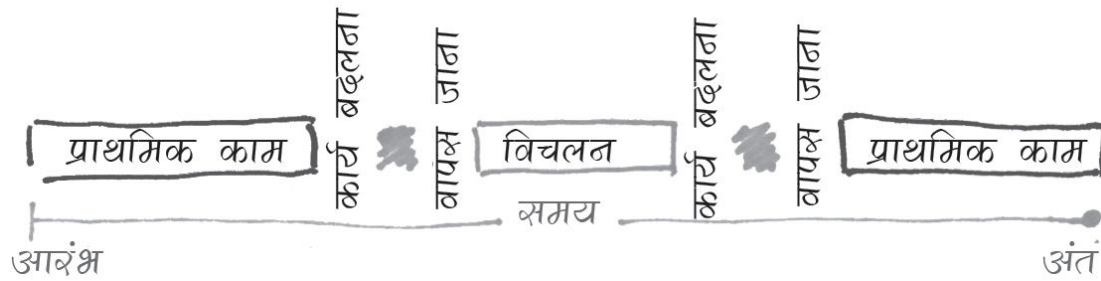 प्राथमिक काम
कार्य बदलना
वापस जाना
विचलन
कार्य बदलना
वापस जाना
प्राथमिक काम
समय
आरंभ
अंत